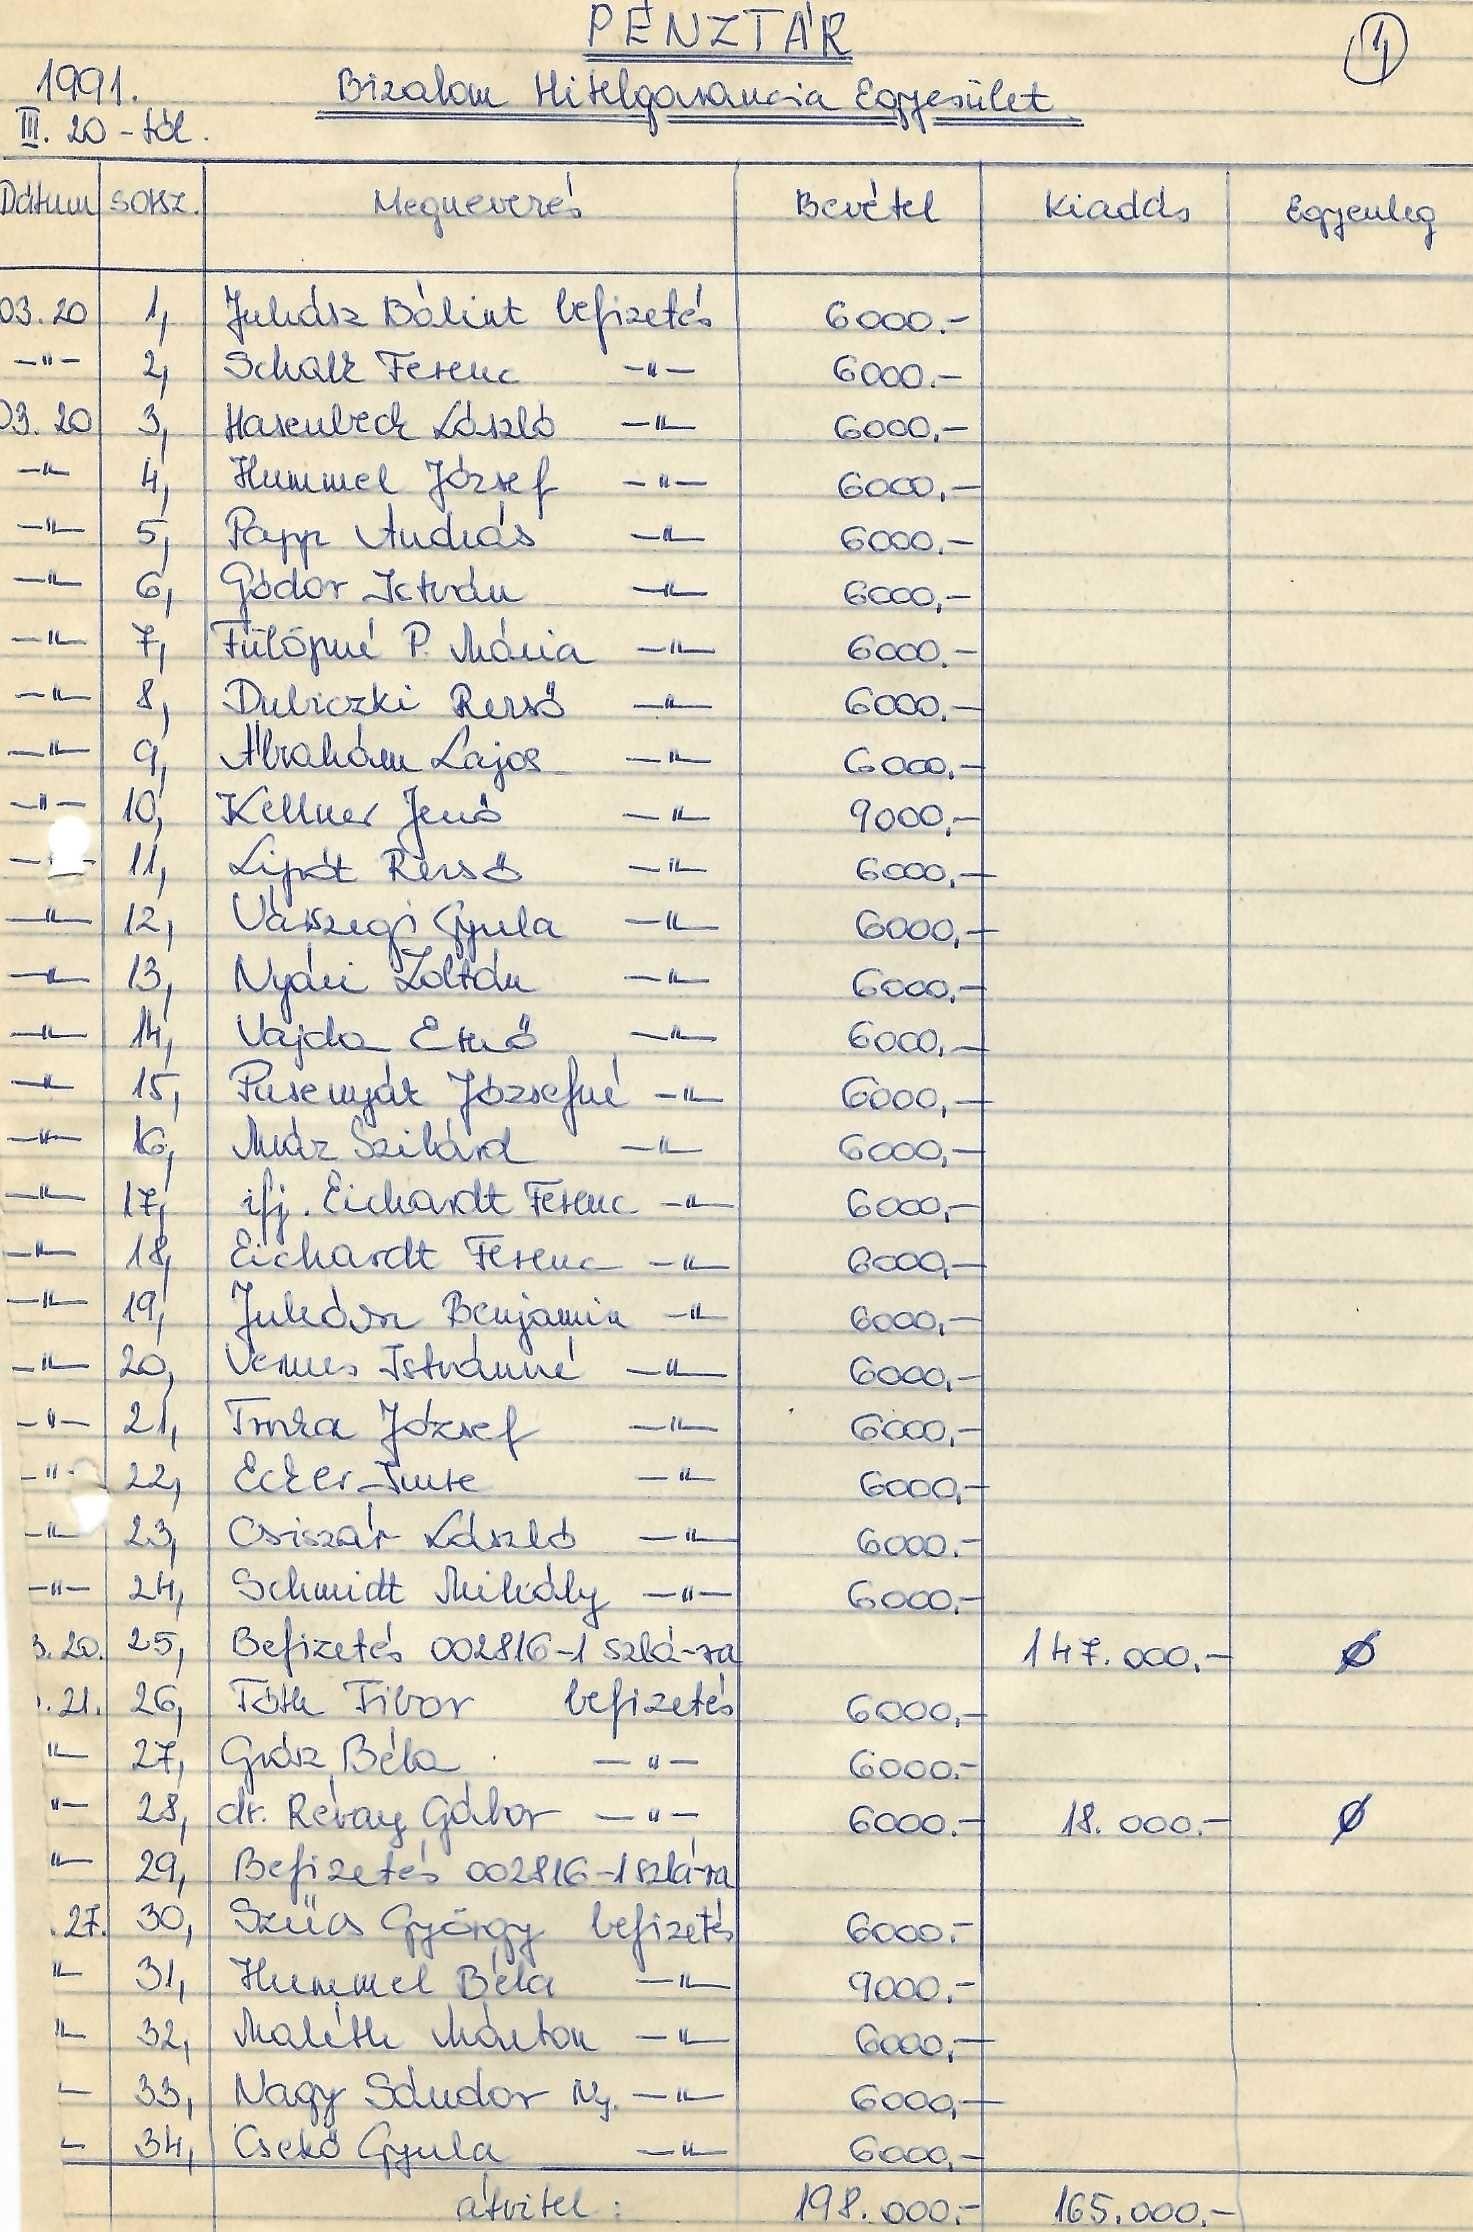 PÉNZTÁR
1
1991.
Bizalom Hitelgarancia Egyesület
III. 20-tól.
Dátum sorsz. Megnevezés Bevétel Kiadás Egyenleg
03.20 1, Juhász Bálint befizetés 6000.-
-"- 2, Schalk Ferenc -"- 6000.-
03.20 3, Hasenbeck László -"- 6000,-
-"- 4, Hummel József -"- 6000,-
-"- 5, Papp András -"- 6000.-
-"- 6, Gódor István -"- 6000,-
-"- 7, Fülöpné P. Mária -"- 6000.-
-"- 8, Dubiczki Rezső -"- 6000.-
-"- 9, Ábrahám Lajos -"- 6000,-
-"- 10, Kellner Jenő -"- 9000,-
-"- 11, Lipót Rezső -"- 6000,-
-"- 12, Várszegi Gyula -"- 6000,-
-"- 13, Nyári Zoltán -"- 6000,-
-"- 14, Vajda Ernő -"- 6000,-
-"- 15, Józsefné -"- 6000,-
-"- 16, Szilárd -"- 6000,-
-"- 17, ifj. Eichardt Ferenc -"- 6000,-
-"- 18, Eichardt Ferenc -"- 6000,-
-"- 19, Juhász Benjamin -"- 6000,-
-"- 20, Vermes Istvánné -"- 6000,-
-"- 21, József -"- 6000,-
-"- 22, Ecker Imre -"- 6000,-
-"- 23, Csiszár László -"- 6000.-
-"- 24, Schmidt Mihály -"- 6000,-
3.20. 25, Befizetés 002816-1 szlá-ra 147.000,- ø
.21. 26, Tóth Tibor befizetés 6000,-
"- 27, Grósz Béla -"- 6000.-
"- 28, dr. Révay Gábor -"- 6000.- 18.000.- ø
"- 29, Befizetés 002816-1 szlá-ra
.27. 30, Szűcs György befizetés 6000.-
"- 31, Hummel Béla -"- 9000.-
"- 32, Maléth Márton -"- 6000,-
- 33, Nagy Sándor Ny. -"- 6000,-
- 34, Csekő Gyula -"- 6000,-
átvitel: 198.000.- 165.000,-